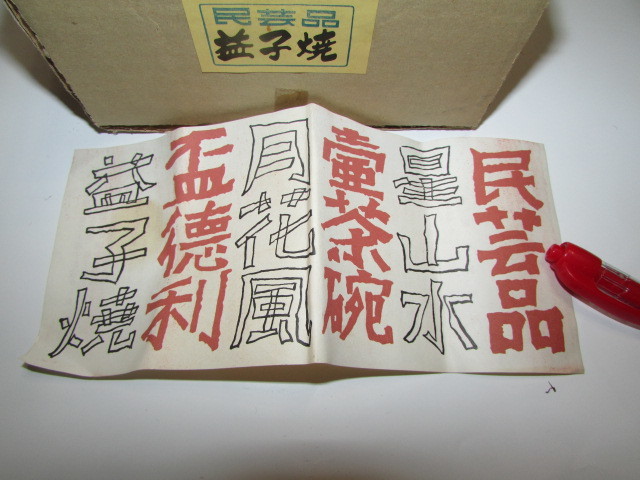 民芸品
益子焼
民芸品
星山水
壷茶碗
月花風
盃徳利
益子焼